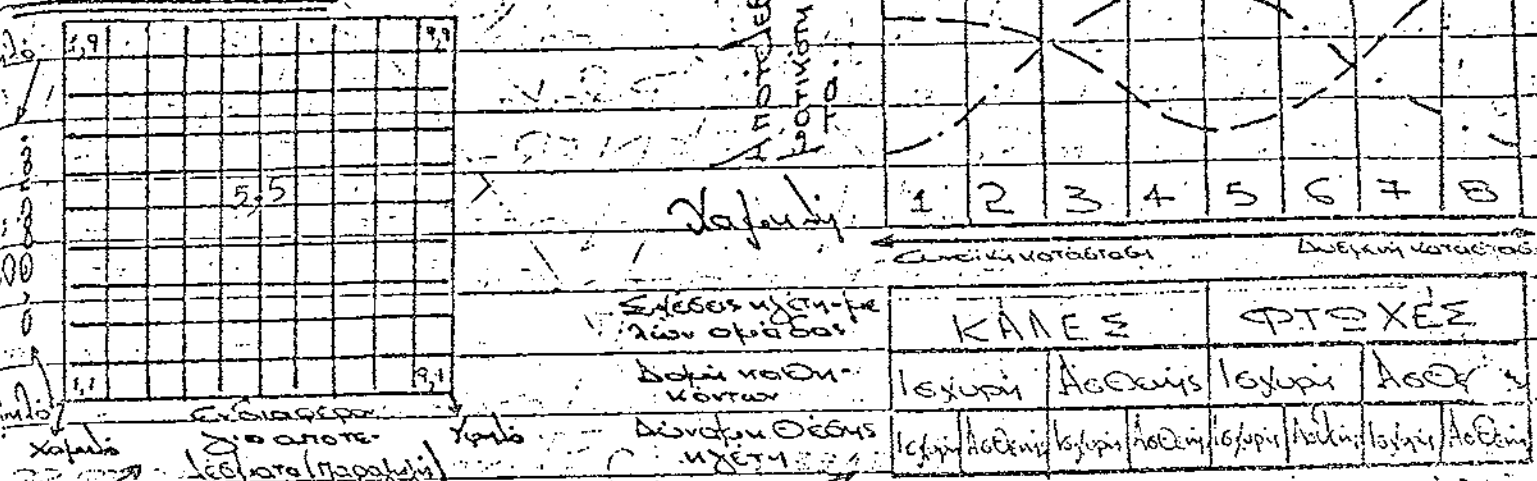 1,9 9,9
5,5
1,1 9,1
Χαμηλό Υψηλό
Ενδιαφέρον
για αποτε-
λέσματα (παραγωγή)
Αποτελεσ
ματικότη
τα.
Χαμηλή
1 2 3 4 5 6 7 8
Ευνοϊκή κατάσταση Δυσμενή κατάσταση
Σχέσεις ηγέτη-με
λών ομάδας ΚΑΛΕΣ ΦΤΩΧΈΣ
Δομή καθη-
κόντων Ισχυρή Ασθενής Ισχυρή
Δύναμη Θέσης
ηγέτη Ισχυρή Ασθενής Ισχυρή Ασθενής Ισχυρή Ασθενής Ισχυρή Ασθενής